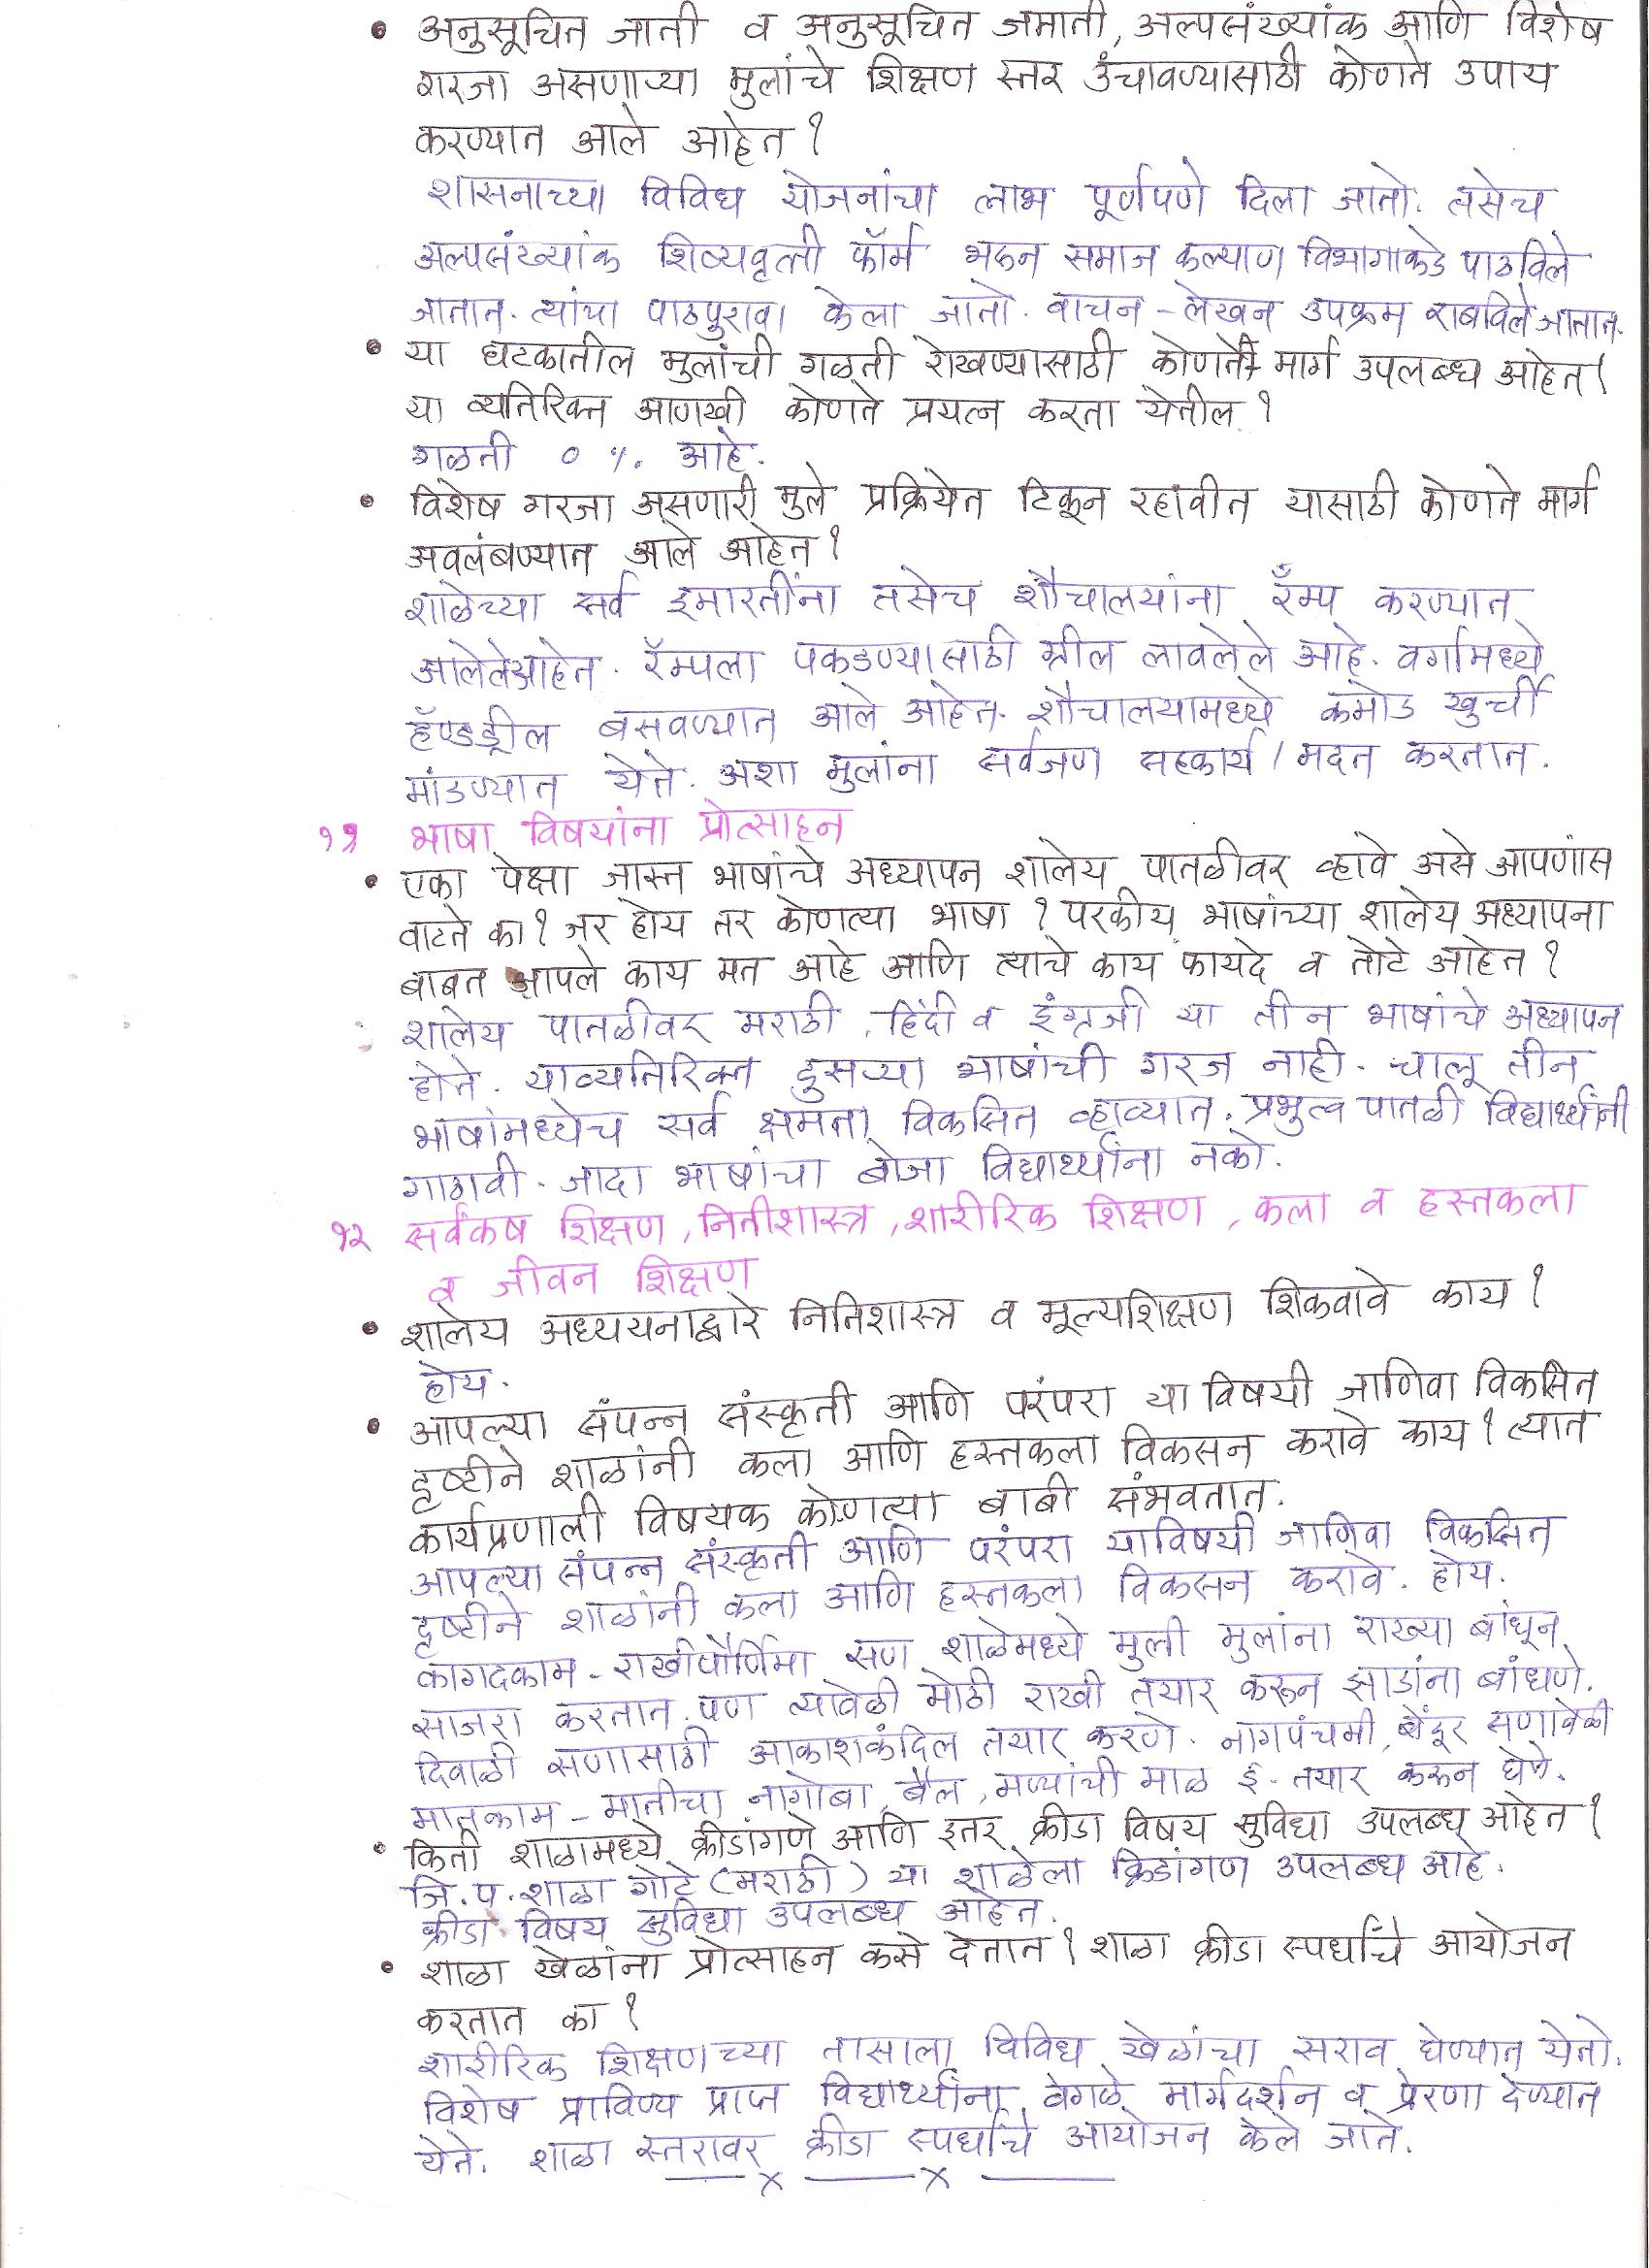 • अनुसूचित जाती व अनुसूचित जमाती, अल्पसंख्यांक आणि विशेष
गरजा असणाऱ्या मुलांचे शिक्षण स्तर उंचावण्यासाठी कोणते उपाय
करण्यात आले आहेत ?
शासनाच्या विविध योजनांचा लाभ पूर्णपणे दिला जातो. तसेच
अल्पसंख्यांक शिष्यवृत्ती फॉर्म भरुन समाज कल्याण विभागाकडे पाठविले
जातात. त्यांचा पाठपुरावा केला जातो. वाचन - लेखन उपक्रम राबविले जातात.
• या घटकातील मुलांची गळती रोखण्यासाठी कोणते मार्ग उपलब्ध आहेत ?
या व्यतिरिक्त आणखी कोणते प्रयत्न करता येतील ?
गळती ० %. आहे.
• विशेष गरजा असणारी मुले प्रक्रियेत टिकून रहावीत यासाठी कोणते मार्ग
अवलंबण्यात आले आहेत ?
शाळेच्या सर्व इमारतींना तसेच शौचालयांना रॅम्प करण्यात
आलेले आहेत. रॅम्पला पकडण्यासाठी ग्रील लावलेले आहे. वर्गामध्ये
हॅण्डड्रील बसवण्यात आले आहेत. शौचालयामध्ये कमोड खुर्ची
मांडण्यात येते. अशा मुलांना सर्वजण सहकार्य / मदत करतात.
११ भाषा विषयांना प्रोत्साहन
• एका पेक्षा जास्त भाषांचे अध्यापन शालेय पातळीवर व्हावे असे आपणांस
वाटते का ? जर होय तर कोणत्या भाषा ? परकीय भाषांच्या शालेय अध्यापना
बाबत आपले काय मत आहे आणि त्याचे काय फायदे व तोटे आहेत ?
शालेय पातळीवर मराठी, हिंदी व इंग्रजी या तीन भाषांचे अध्यापन
होते. याव्यतिरिक्त दुसऱ्या भाषांची गरज नाही. चालू तीन
भाषांमध्येच सर्व क्षमता विकसित व्हाव्यात. प्रभुत्व पातळी विद्यार्थ्यांनी
गाठावी. जादा भाषांचा बोजा विद्यार्थ्यांना नको.
१२ सर्वंकष शिक्षण, नितीशास्त्र, शारीरिक शिक्षण, कला व हस्तकला
व जीवन शिक्षण
• शालेय अध्ययनाद्वारे नितिशास्त्र व मूल्यशिक्षण शिकवावे काय ?
होय.
• आपल्या संपन्न संस्कृती आणि परंपरा या विषयी जाणिवा विकसित
दृष्टीने शाळांनी कला आणि हस्तकला विकसन करावे काय ? त्यात
कार्यप्रणाली विषयक कोणत्या बाबी संभवतात.
आपल्या संपन्न संस्कृती आणि परंपरा याविषयी जाणिवा विकसित
दृष्टीने शाळांनी कला आणि हस्तकला विकसन करावे. होय.
कागदकाम - राखीपौर्णिमा सण शाळेमध्ये मुली मुलांना राख्या बांधून
साजरा करतात. पण त्यावेळी मोठी राखी तयार करून झाडांना बांधणे.
दिवाळी सणासाठी आकाशकंदिल तयार करणे. नागपंचमी, बेंदूर सणावेळी
मातकाम - मातीचा नागोबा, बैल, मण्यांची माळ इ. तयार करून घेणे.
• किती शाळामध्ये क्रीडांगणे आणि इतर क्रीडा विषय सुविधा उपलब्ध आहेत ?
जि. प. शाळा गोटे (मराठी) या शाळेला क्रिडांगण उपलब्ध आहे.
क्रीडा विषय सुविधा उपलब्ध आहेत.
• शाळा खेळांना प्रोत्साहन कसे देतात ? शाळा क्रीडा स्पर्धांचे आयोजन
करतात का ?
शारीरिक शिक्षणाच्या तासाला विविध खेळांचा सराव घेण्यात येतो.
विशेष प्राविण्य प्राप्त विद्यार्थ्यांना वेगळे मार्गदर्शन व प्रेरणा देण्यात
येते. शाळा स्तरावर क्रीडा स्पर्धांचे आयोजन केले जाते.